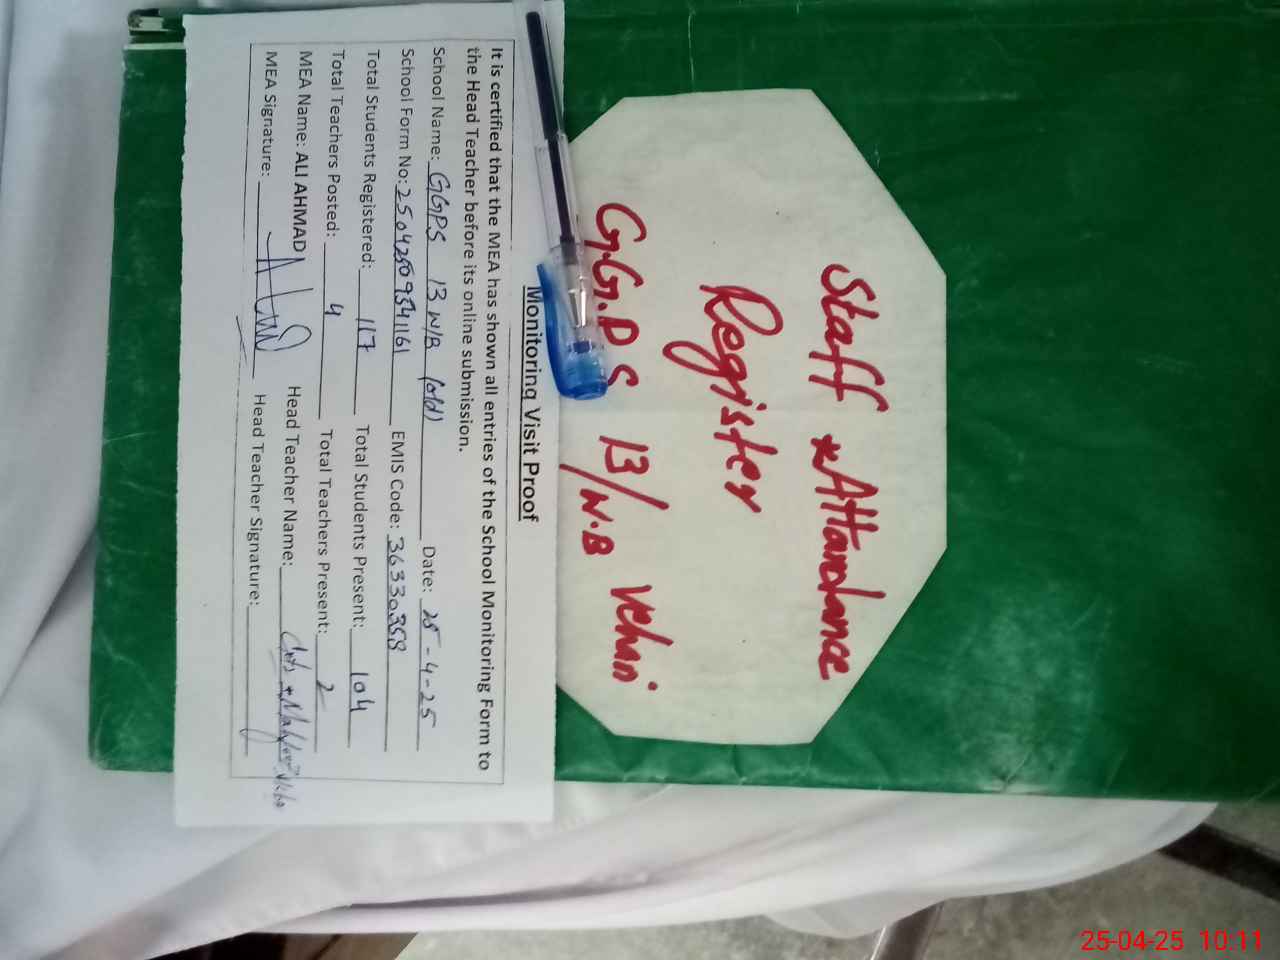 Staff Attandance
Register
G.G.P.S 13/W.B Vehari
Monitoring Visit Proof
It is certified that the MEA has shown all entries of the School Monitoring Form to
the Head Teacher before its online submission.
School Name: GGPS 13 W/B (old) Date: 25-4-25
School Form No: EMIS Code: 36330358
Total Students Registered: 117 Total Students Present: 104
Total Teachers Posted: 4 Total Teachers Present: 2
MEA Name: ALI AHMAD Head Teacher Name:
MEA Signature: Head Teacher Signature:
25-04-25 10:11